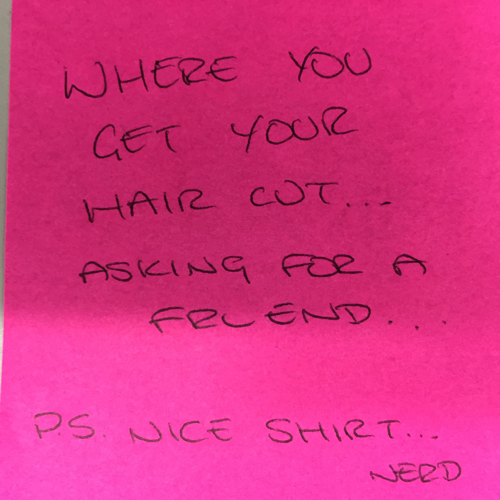 WHERE YOU
GET YOUR
HAIR CUT...
ASKING FOR A
FRIEND...
P.S. NICE SHIRT...
NERD